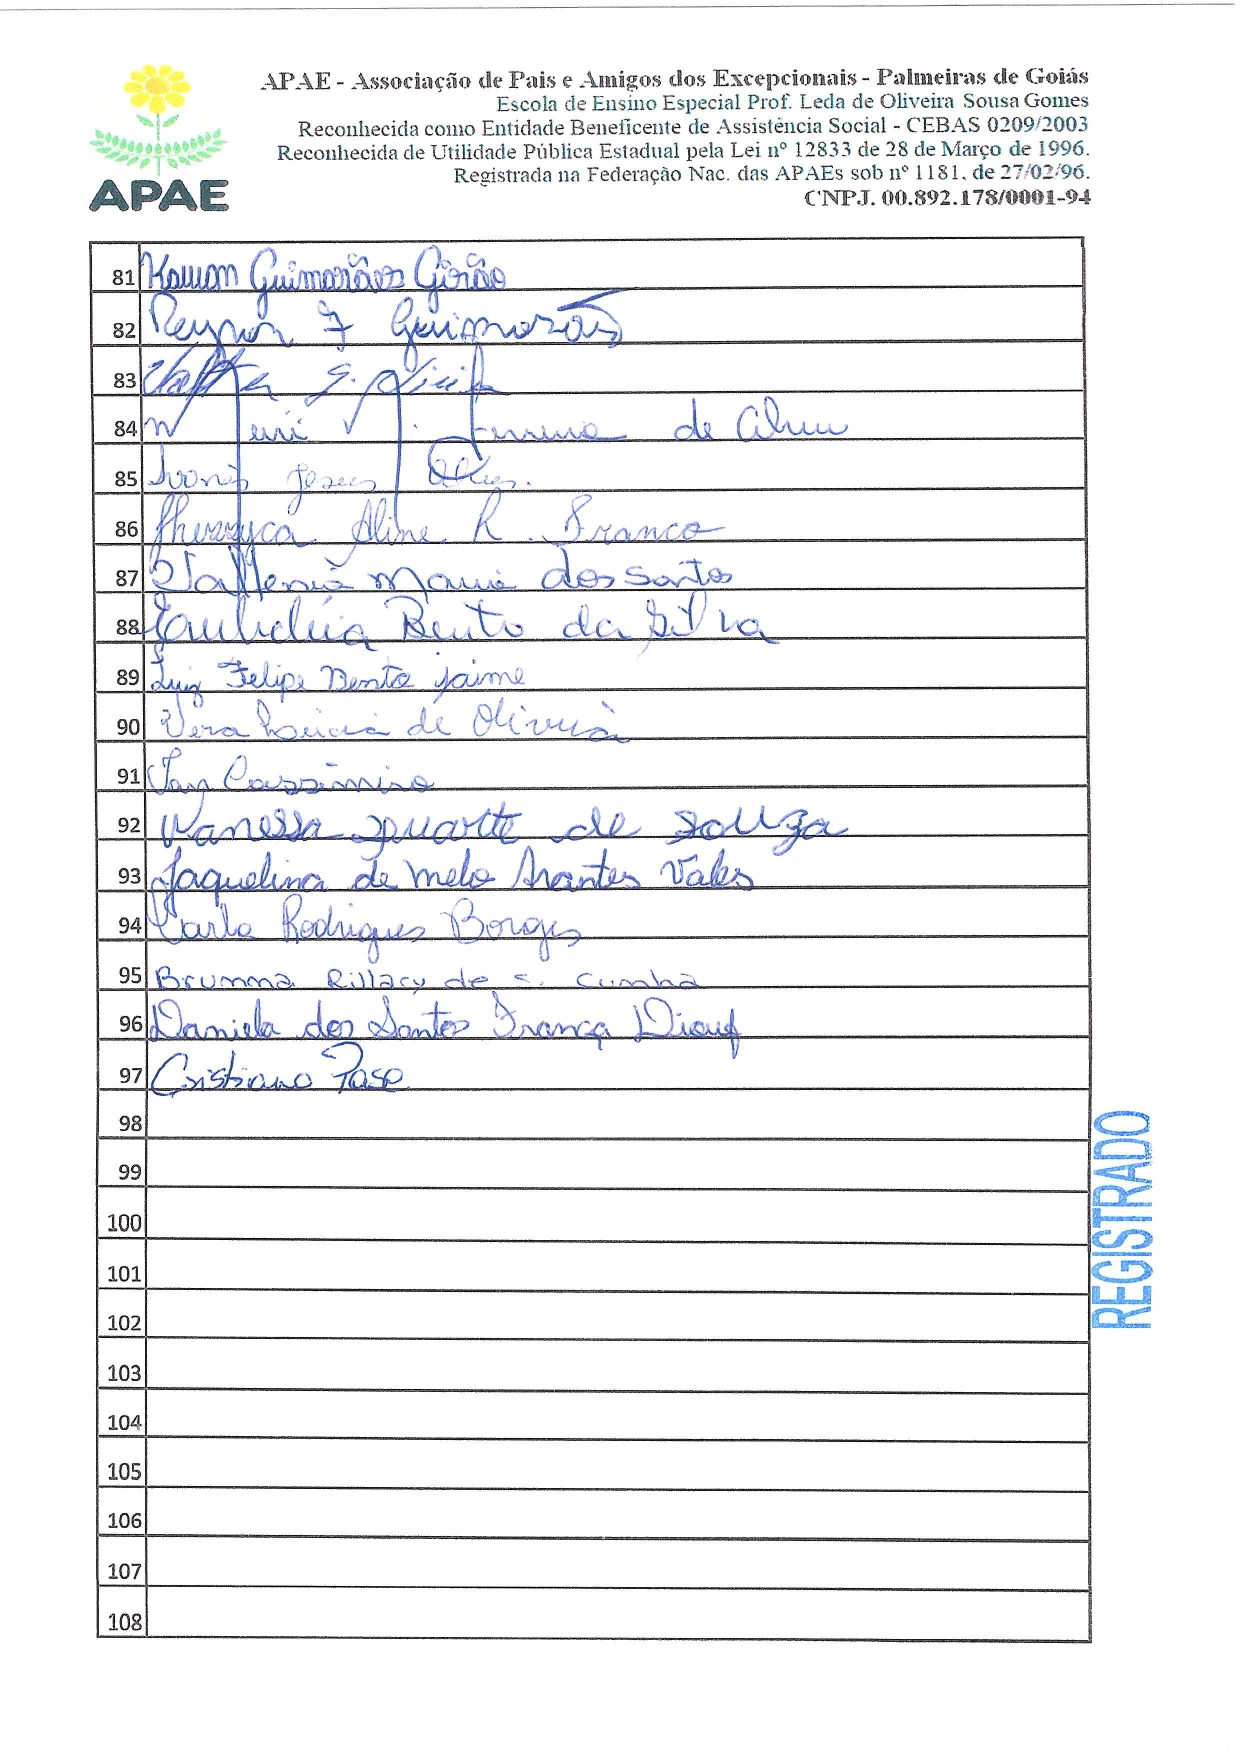 APAE - Associação de Pais e Amigos dos Excepcionais - Palmeiras de Goiás
Escola de Ensino Especial Prof. Leda de Oliveira Sousa Gomes
Reconhecida como Entidade Beneficente de Assistência Social - CEBAS 0209/2003
Reconhecida de Utilidade Pública Estadual pela Lei nº 12833 de 28 de Março de 1996.
Registrada na Federação Nac. das APAEs sob nº 1181, de 27/02/96.
CNPJ. 00.892.178/0001-94
APAE
81 Kauan Guimarães Girão
82 Guimarães
83
84 de
85 Jesus
86 Aline R. Franco
87 Maria dos Santos
88 Bento da Silva
89 Luiz Felipe Bento Jaime
90 Vera Lúcia de Oliveira
91 Cassimiro
92 Wanessa Duarte de Souza
93 Jaquelina de Melo Arantes Vales
94 Carla Rodrigues Borges
95 Brunna Rillacy de S. Cunha
96 Daniela dos Santos França Diouf
97 Cristiano Paso
98
99
100
101
102
103
104
105
106
107
108
REGISTRADO